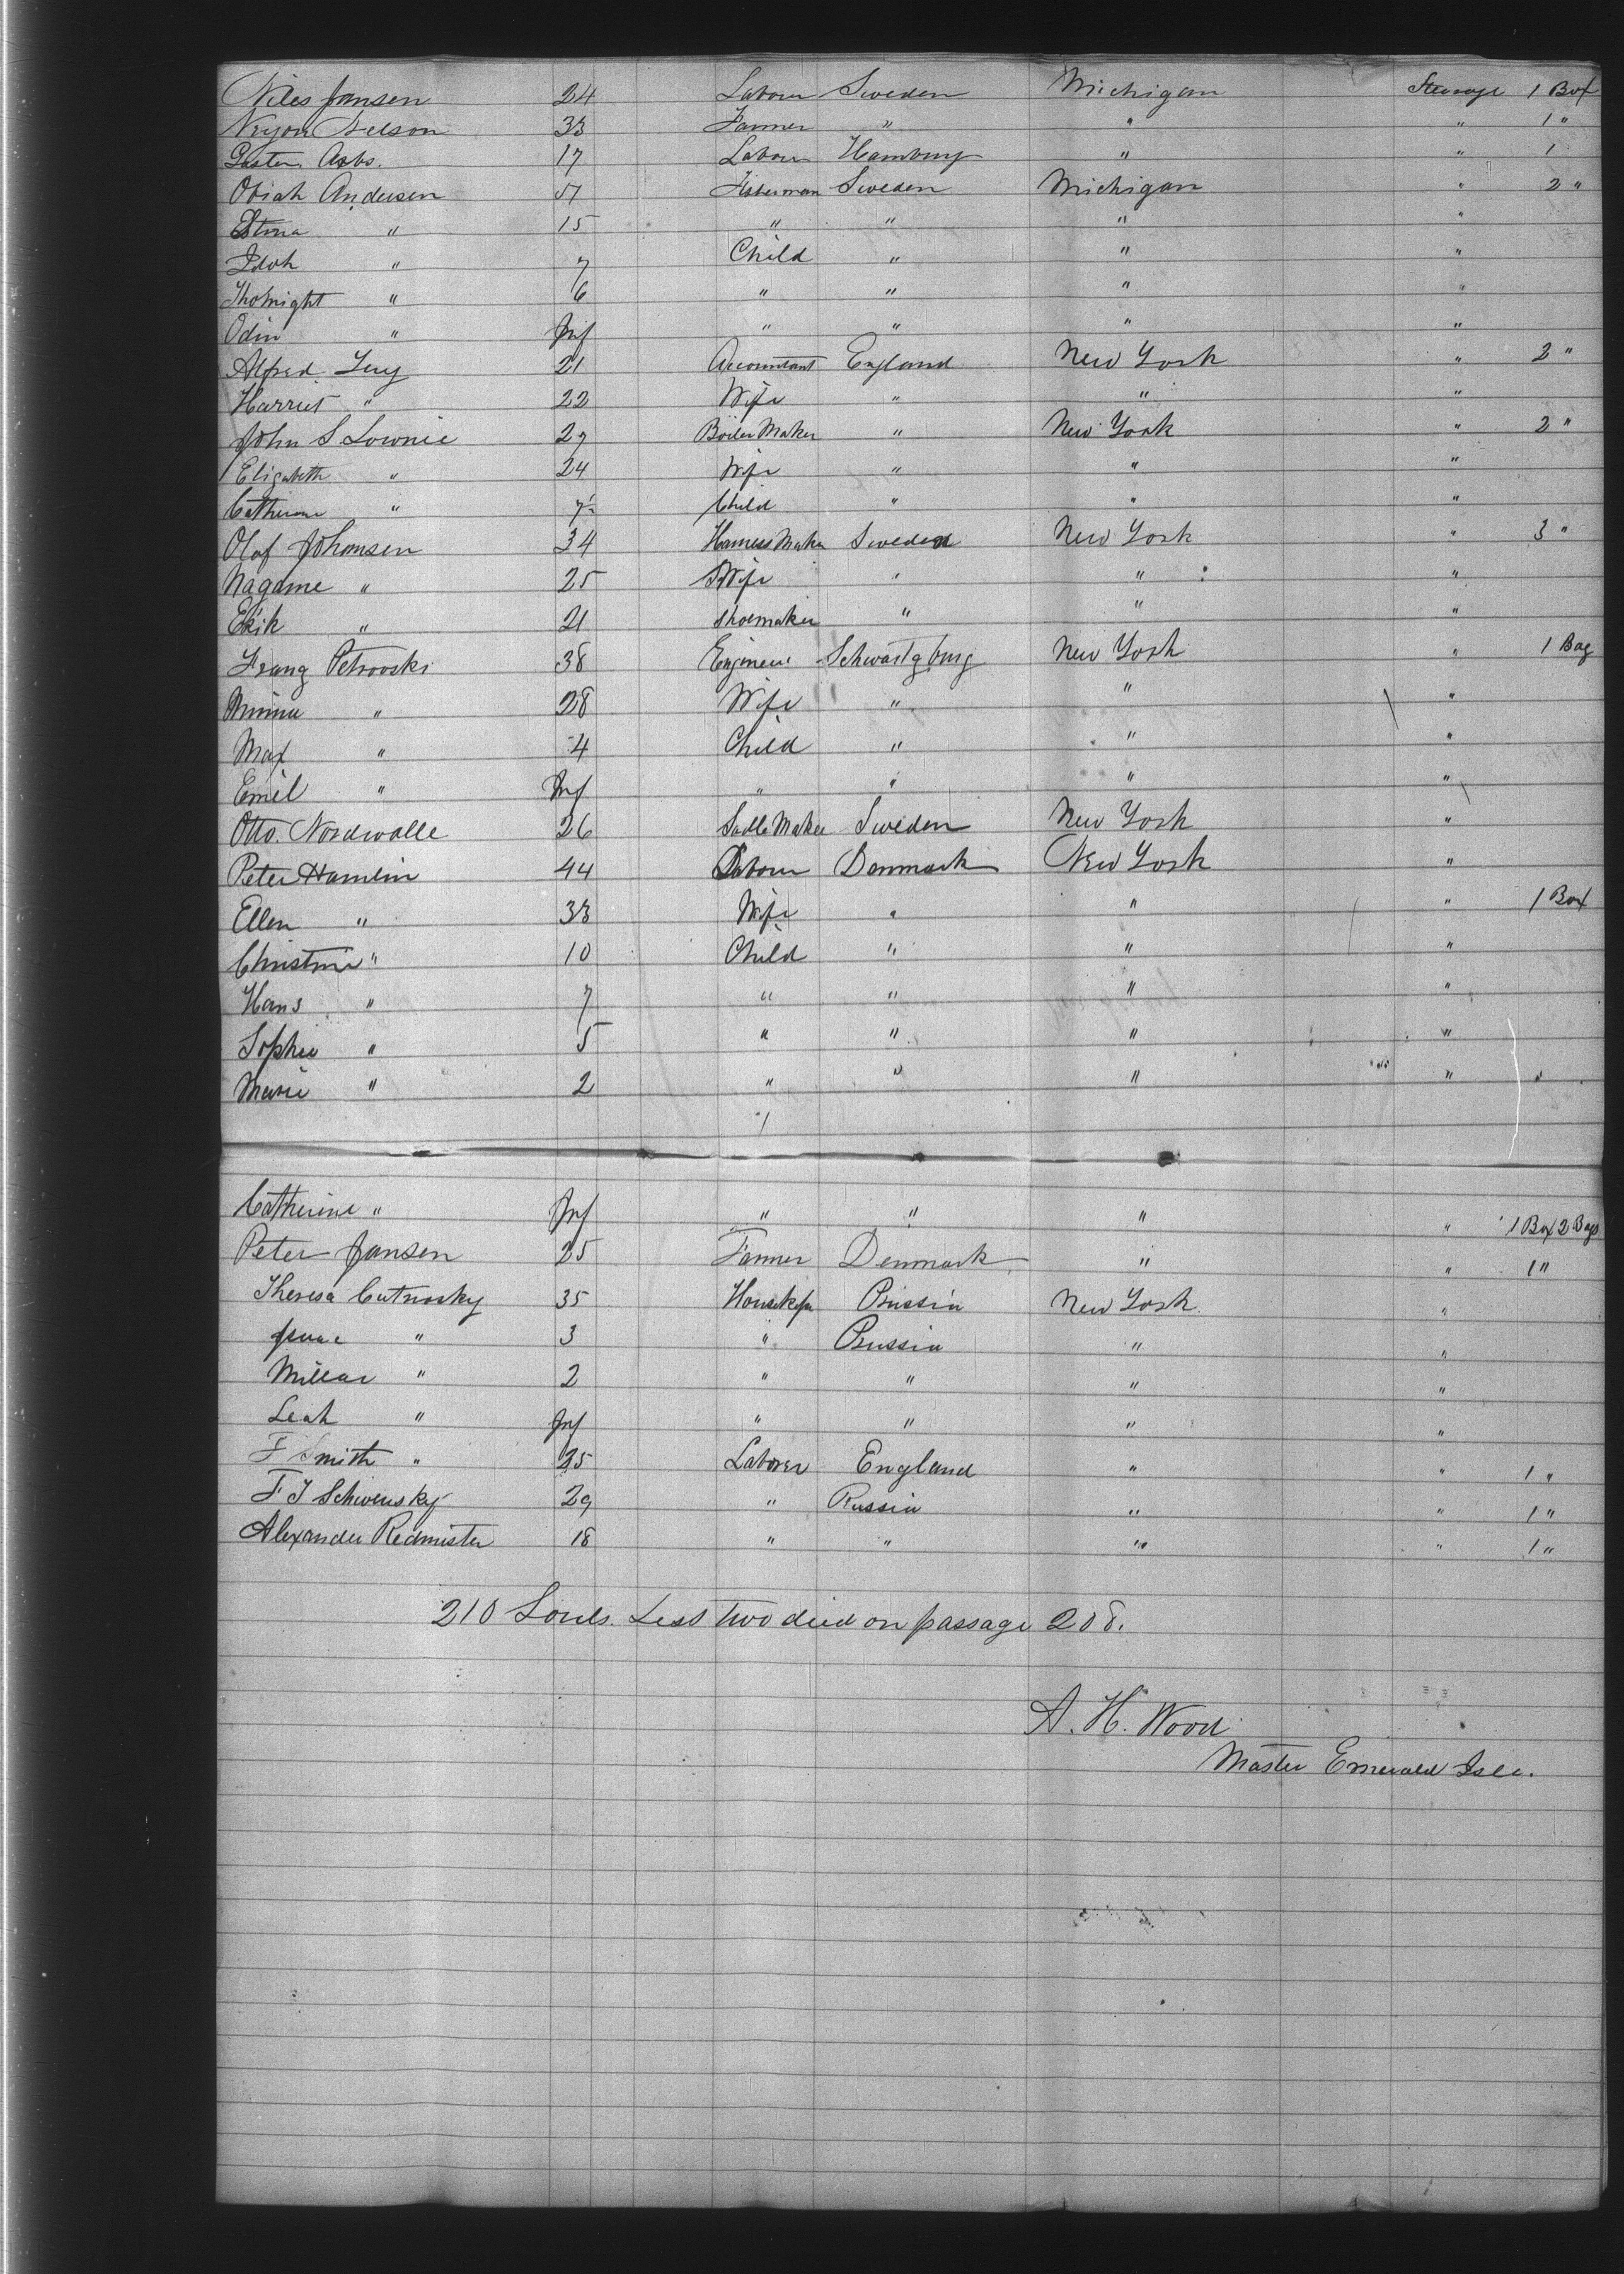 Niles Jansen 24 Labour Sweden Michigan Steerage 1 Box
Nelson 33 Farmer " " " 1 "
17 Labour Hamburg " " 1
Andersen Fisherman Sweden Michigan " 2 "
" 15 " " " "
Idoh " 7 Child " " "
" 6 " " " "
Odin " Inf " " " "
Alfred 21 Accountant England New York " 2 "
Harriet " 22 Wife " " "
John S Lownie 27 Boiler Maker " New York " 2 "
Elizabeth " 24 Wife " " "
Catherine " Child " " "
Olof Johansen 34 Harness Maker Sweden New York " 3 "
Nagame " 25 Wife " " "
Erik " 21 Shoemaker " " "
Franz Petrovski 38 Engineer New York " 1 Bag
Minna " 28 Wife " " "
Max " 4 Child " " "
Emil " Inf " " " "
Otto. Nordwalle 26 Sadle Maker Sweden New York "
Peter Hamlin 44 Labour Denmark New York "
Ellen " 33 Wife " " " 1 Box
Christine " 10 Child " " "
Hans " 7 " " " "
Sophie " 5 " " " "
Marie " 2 " " " " "
Catherine " Inf " " " " 1 Box 2 Bags
Peter Jansen 25 Farmer Denmark " " 1 "
Theresa Cutnosky 35 Prussia New York "
" 3 " Prussia " "
" 2 " " " "
Leah " Inf " " " "
F Smith " 25 Laborer England " " 1 "
F J Schwensky 29 " Russia " " 1 "
Alexander Redmister 18 " " " " 1 "
210 Souls. Less two died on passage 208.
A. H. Wood
Master Emerald Isle.